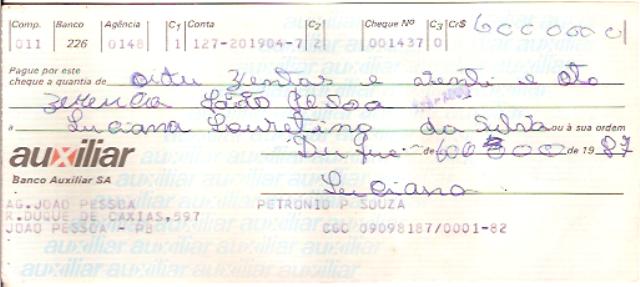 Comp. Banco Agência C1 Conta C2 Cheque Nº C3 Cr$ 600 000 0
011 226 0148 1 127-201904-7 2 001437 0
Pague por este
cheque a quantia de oitu zentos e
João Pessoa
a Luciana Lauretino da Silva ou à sua ordem
auxiliar de 600 000 de 19 87
Banco Auxiliar SA
Luciana
AG.JOAO PESSOA PETRONIO P SOUZA
R.DUQUE DE CAXIAS,597
JOAO PESSOA - PB CGC 09098187/0001-82